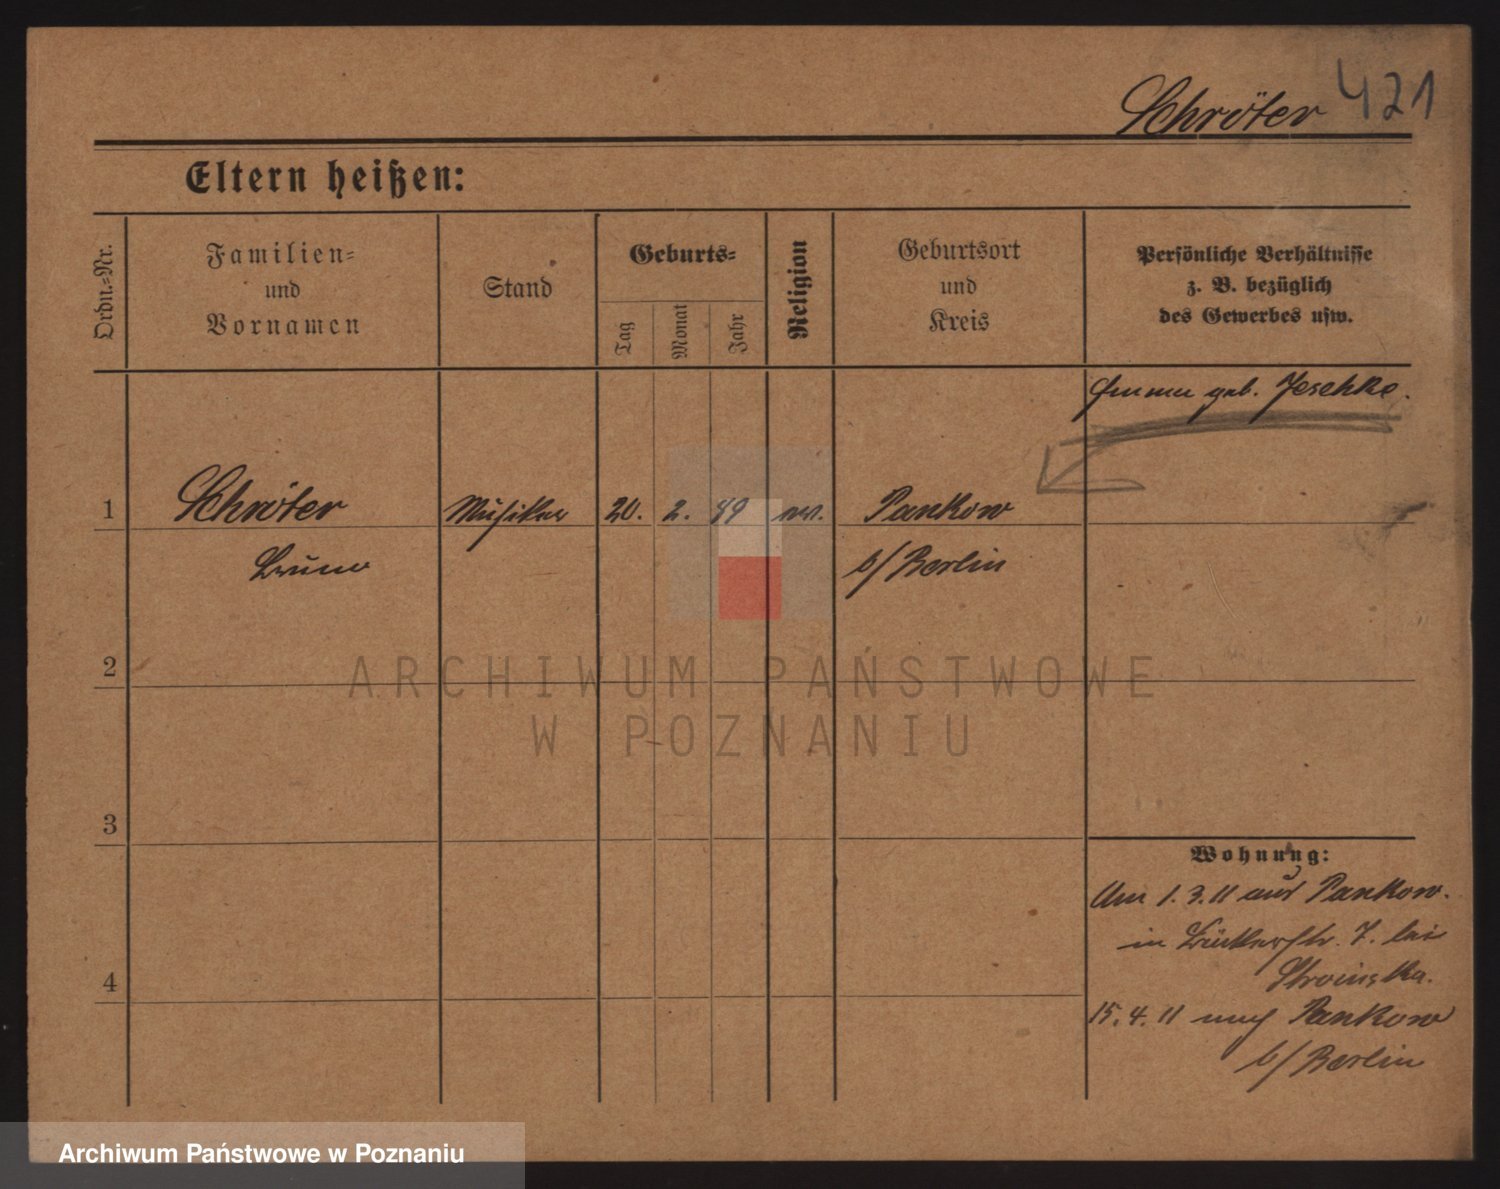 Schröter 421
Eltern heißen:
Ordn.=Nr.
Familien=
und
Vornamen
Stand
Geburts=
Tag
Monat
Jahr
Religion
Geburtsort
und
Kreis
Persönliche Verhältnisse
z. B. bezüglich
des Gewerbes usw.
geb. Jeschke.
1 Schröter Musiker 20. 2. 89 ev. Pankow
Bruno b/Berlin
2
ARCHIWUM PAŃSTWOWE
W POZNANIU
3
Wohnung:
Am 1.3.11 aus Pankow.
in Bäckerstr. 7. bei
Stroinska.
4
15.4.11 nach Pankow
b/Berlin
Archiwum Państwowe w Poznaniu